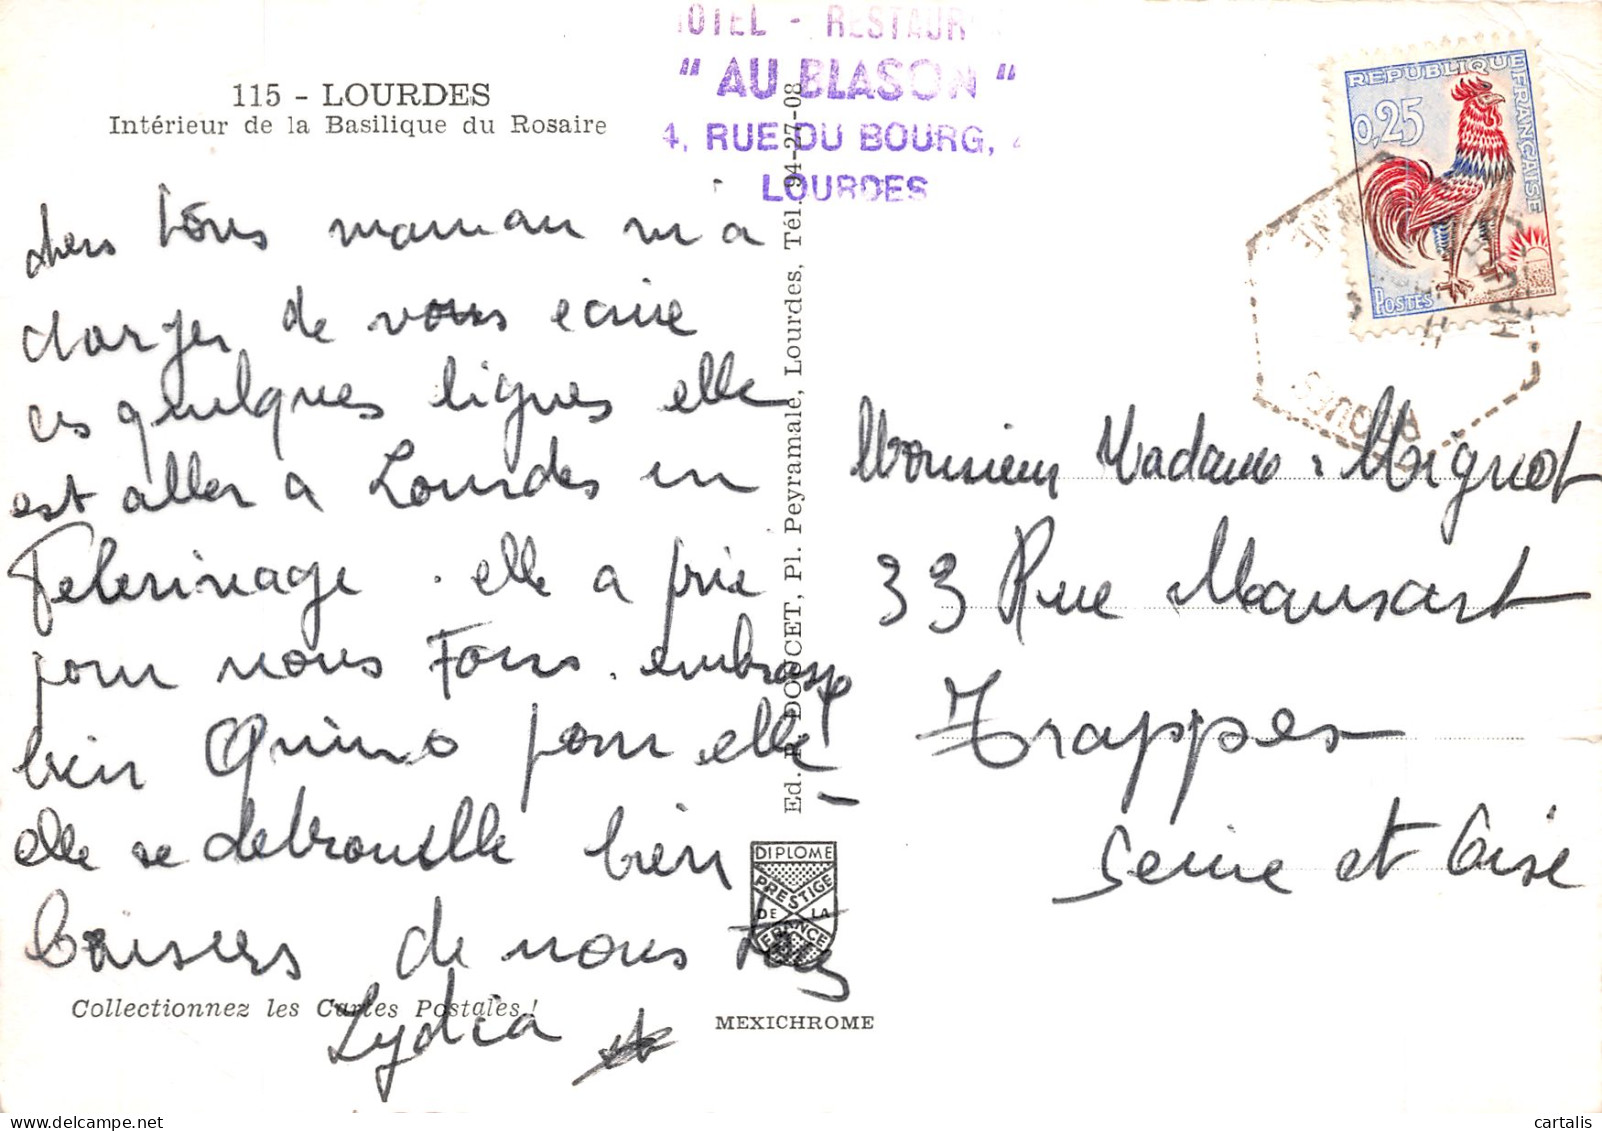 HOTEL - RESTAUR
" AU BLASON "
4, RUE DU BOURG, 4
LOURDES
115 - LOURDES
Intérieur de la Basilique du Rosaire
chers tous maman m a
charger de vous ecrire
ces quelques lignes elle
est aller a Lourdes en
Pelerinage . elle a prié
pour nous Tous. embrassé
bien Quino pour elle !
elle se debrouille bien
Baisers de nous tous
Lydia
Collectionnez les Cartes Postales !
Ed. DOUCET, Pl. Peyramale, Lourdes, Tél. 94-27-08
DIPLOME
PRESTIGE
DE LA
FRANCE
MEXICHROME
REPUBLIQUE FRANÇAISE
0,25
POSTES
Monsieur Madame Mignot
33 Rue Mansart
Trappes
Seine et Oise
cartalis
delcampe.net